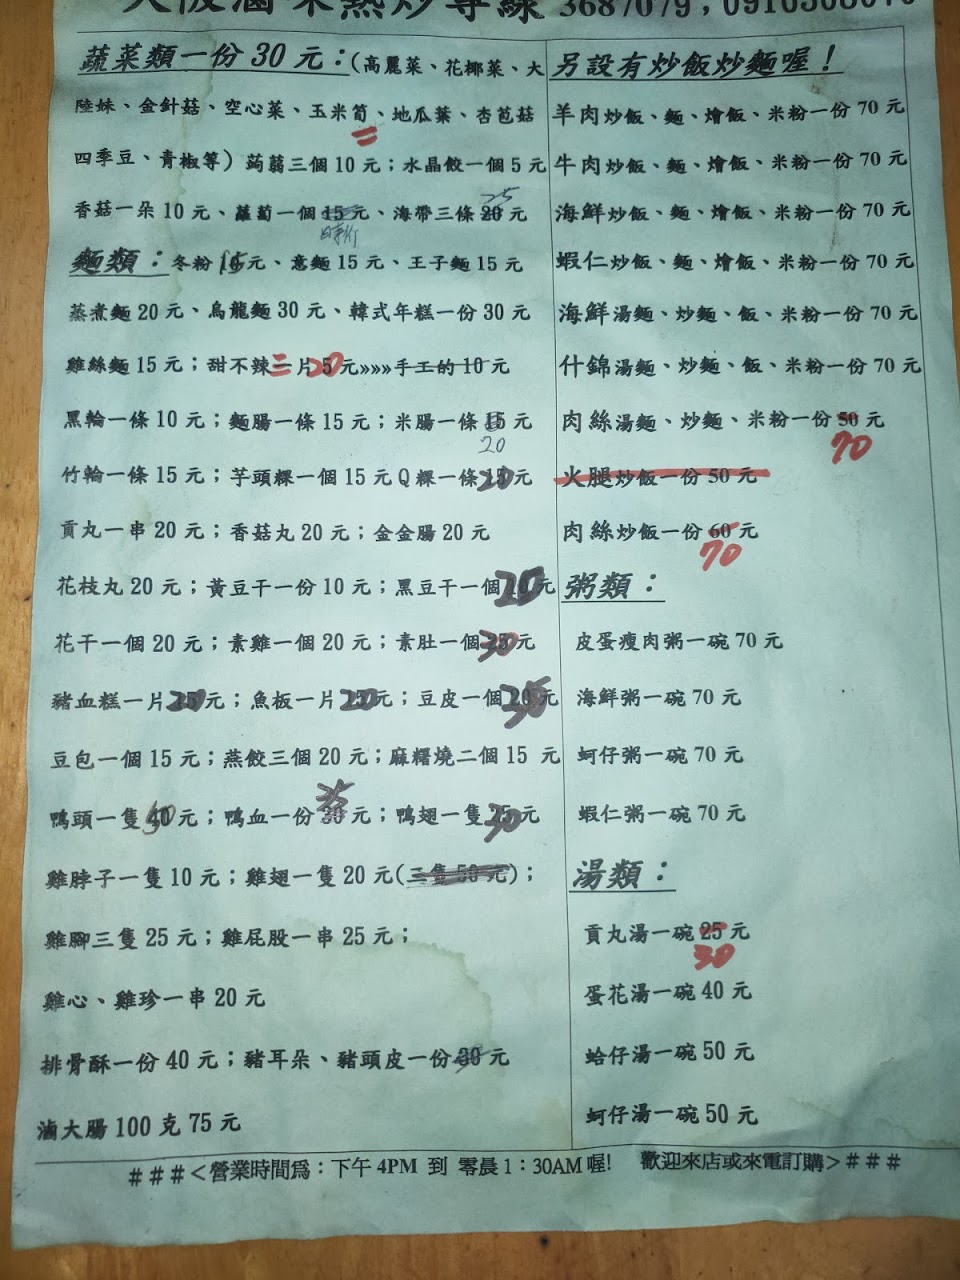 滷味熱炒專線 3687079，
蔬菜類一份 30 元：(高麗菜、花椰菜、大
陸妹、金針菇、空心菜、玉米筍、地瓜葉、杏苞菇
四季豆、青椒等) 蒟蒻三個 10 元；水晶餃一個 5 元
25
香菇一朵 10 元、蘿蔔一個 15 元、海帶三條 20 元
時价
麵類：冬粉 15 元、意麵 15 元、王子麵 15 元
蒸煮麵 20 元、烏龍麵 30 元、韓式年糕一份 30 元
雞絲麵 15 元；甜不辣三片 20 元»»»手工的 10 元
黑輪一條 10 元；麵腸一條 15 元；米腸一條 15 元
20
竹輪一條 15 元；芋頭粿一個 15 元 Q 粿一條 20 元
貢丸一串 20 元；香菇丸 20 元；金金腸 20 元
花枝丸 20 元；黃豆干一份 10 元；黑豆干一個 元
花干一個 20 元；素雞一個 20 元；素肚一個 30 元
豬血糕一片 20 元；魚板一片 20 元；豆皮一個 元
豆包一個 15 元；燕餃三個 20 元；麻糬燒二個 15 元
鴨頭一隻 元；鴨血一份 30 元；鴨翅一隻 30 元
雞脖子一隻 10 元；雞翅一隻 20 元(三隻 50 元)；
雞腳三隻 25 元；雞屁股一串 25 元；
雞心、雞珍一串 20 元
排骨酥一份 40 元；豬耳朵、豬頭皮一份 30 元
滷大腸 100 克 75 元
另設有炒飯炒麵喔！
羊肉炒飯、麵、燴飯、米粉一份 70 元
牛肉炒飯、麵、燴飯、米粉一份 70 元
海鮮炒飯、麵、燴飯、米粉一份 70 元
蝦仁炒飯、麵、燴飯、米粉一份 70 元
海鮮湯麵、炒麵、飯、米粉一份 70 元
什錦湯麵、炒麵、飯、米粉一份 70 元
肉絲湯麵、炒麵、米粉一份 50 元
70
火腿炒飯一份 50 元
肉絲炒飯一份 60 元
70
粥類：
皮蛋瘦肉粥一碗 70 元
海鮮粥一碗 70 元
蚵仔粥一碗 70 元
蝦仁粥一碗 70 元
湯類：
貢丸湯一碗 25 元
30
蛋花湯一碗 40 元
蛤仔湯一碗 50 元
蚵仔湯一碗 50 元
＃＃＃＜營業時間爲：下午 4PM 到 零晨 1：30AM 喔! 歡迎來店或來電訂購＞＃＃＃